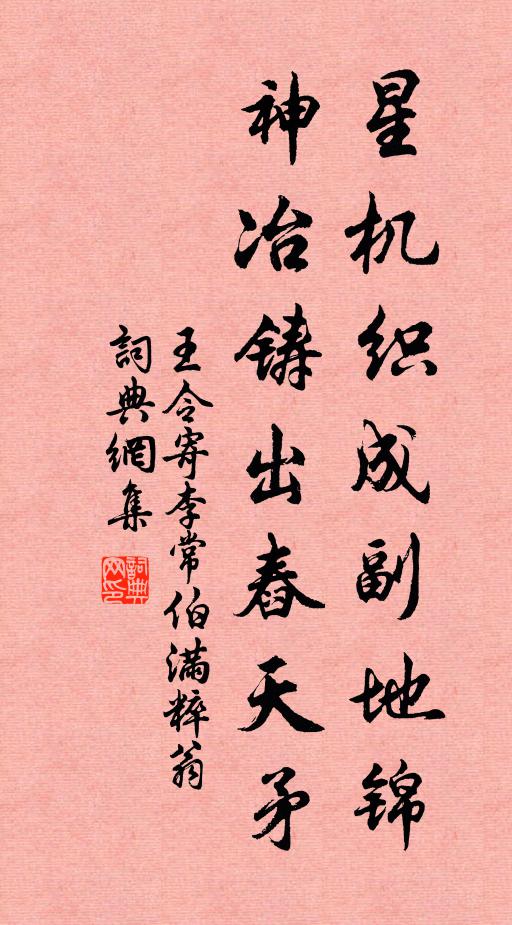 星机织成副地锦
神冶铸出舂天矛
王令寄李常伯满粹翁
詞典網集
詞典網印